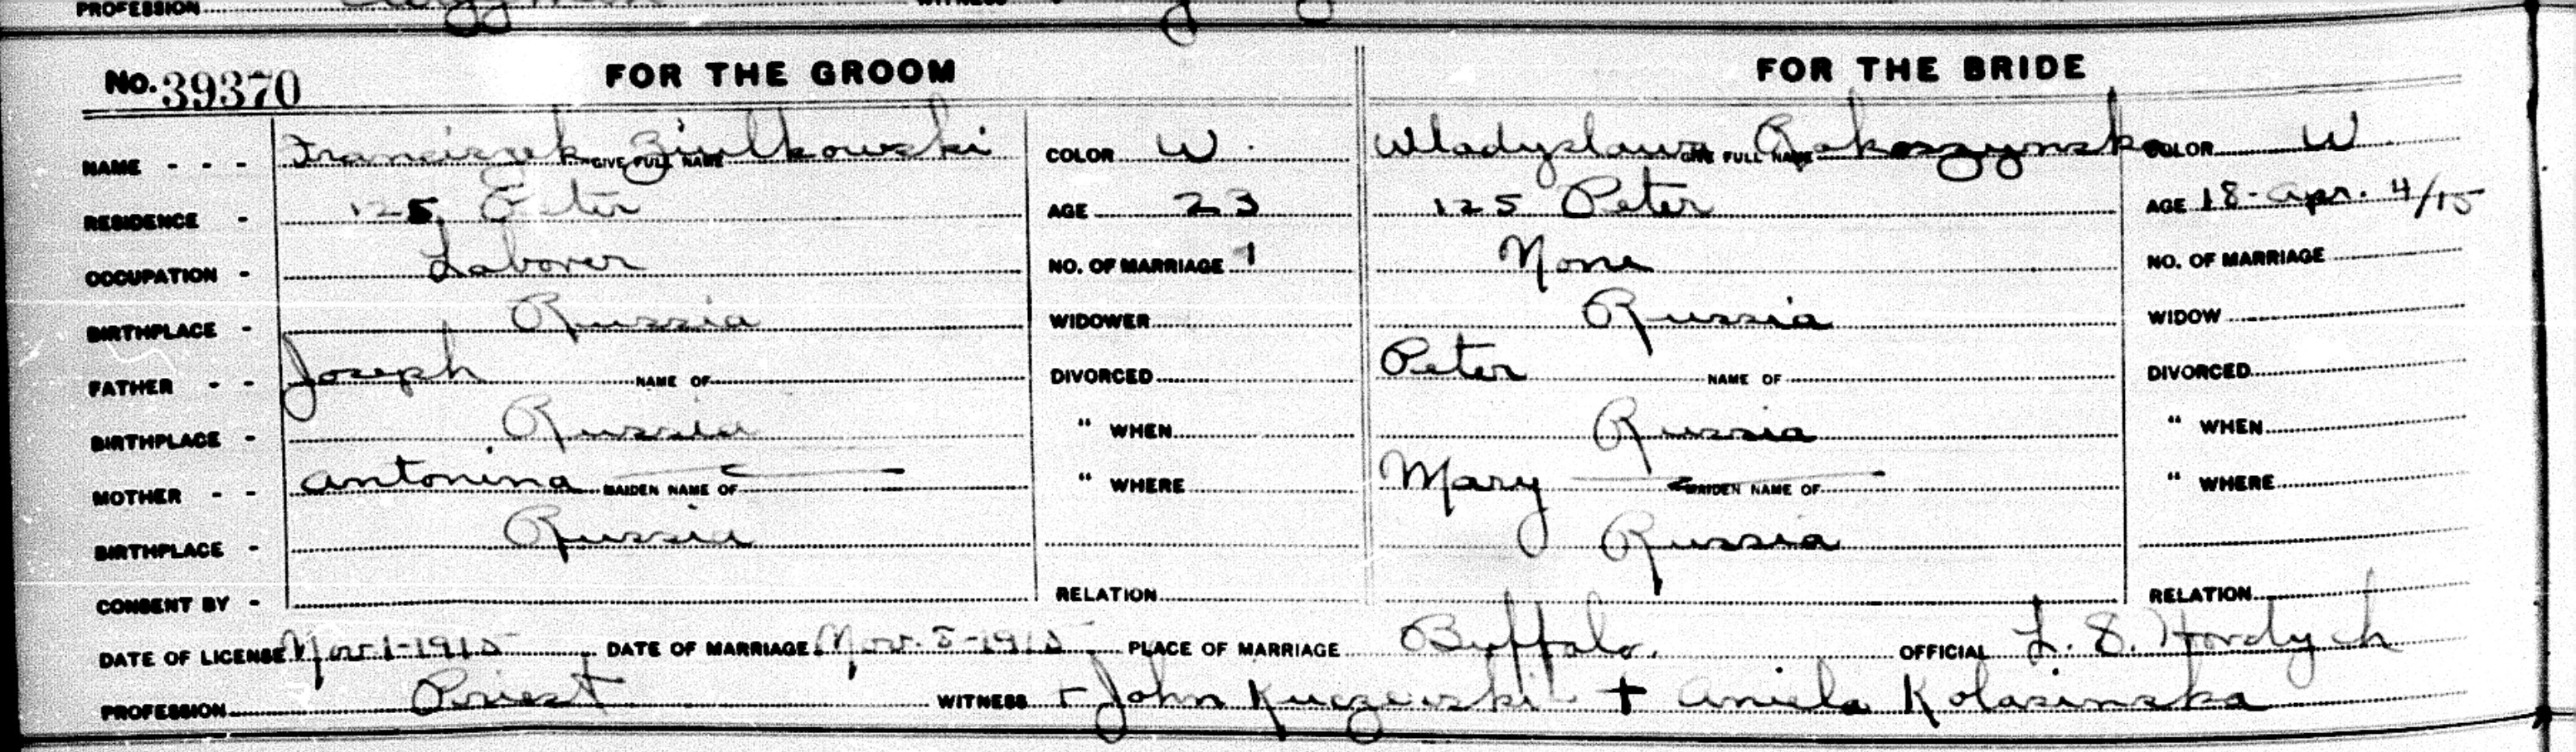 PROFESSION WITNESS
No. 39370 FOR THE GROOM FOR THE BRIDE
NAME - - - Franciszek Ziulkowski GIVE FULL NAME COLOR W. Wladyslawa Rokoszynska GIVE FULL NAME COLOR W
RESIDENCE - 125 Peter AGE 23 125 Peter AGE 18 - Apr. 4/15
OCCUPATION - Laborer NO. OF MARRIAGE 1 None NO. OF MARRIAGE
BIRTHPLACE - Russia WIDOWER Russia WIDOW
FATHER - - Joseph NAME OF DIVORCED Peter NAME OF DIVORCED
BIRTHPLACE - Russia " WHEN Russia " WHEN
MOTHER - - Antonina MAIDEN NAME OF " WHERE Mary MAIDEN NAME OF " WHERE
BIRTHPLACE - Russia Russia
CONSENT BY - RELATION RELATION
DATE OF LICENSE Nov 1-1915 DATE OF MARRIAGE Nov. 8-1915 PLACE OF MARRIAGE Buffalo. OFFICIAL L. S. Hordych
PROFESSION Priest WITNESS + John Kuczewski + Aniela Kolasinska